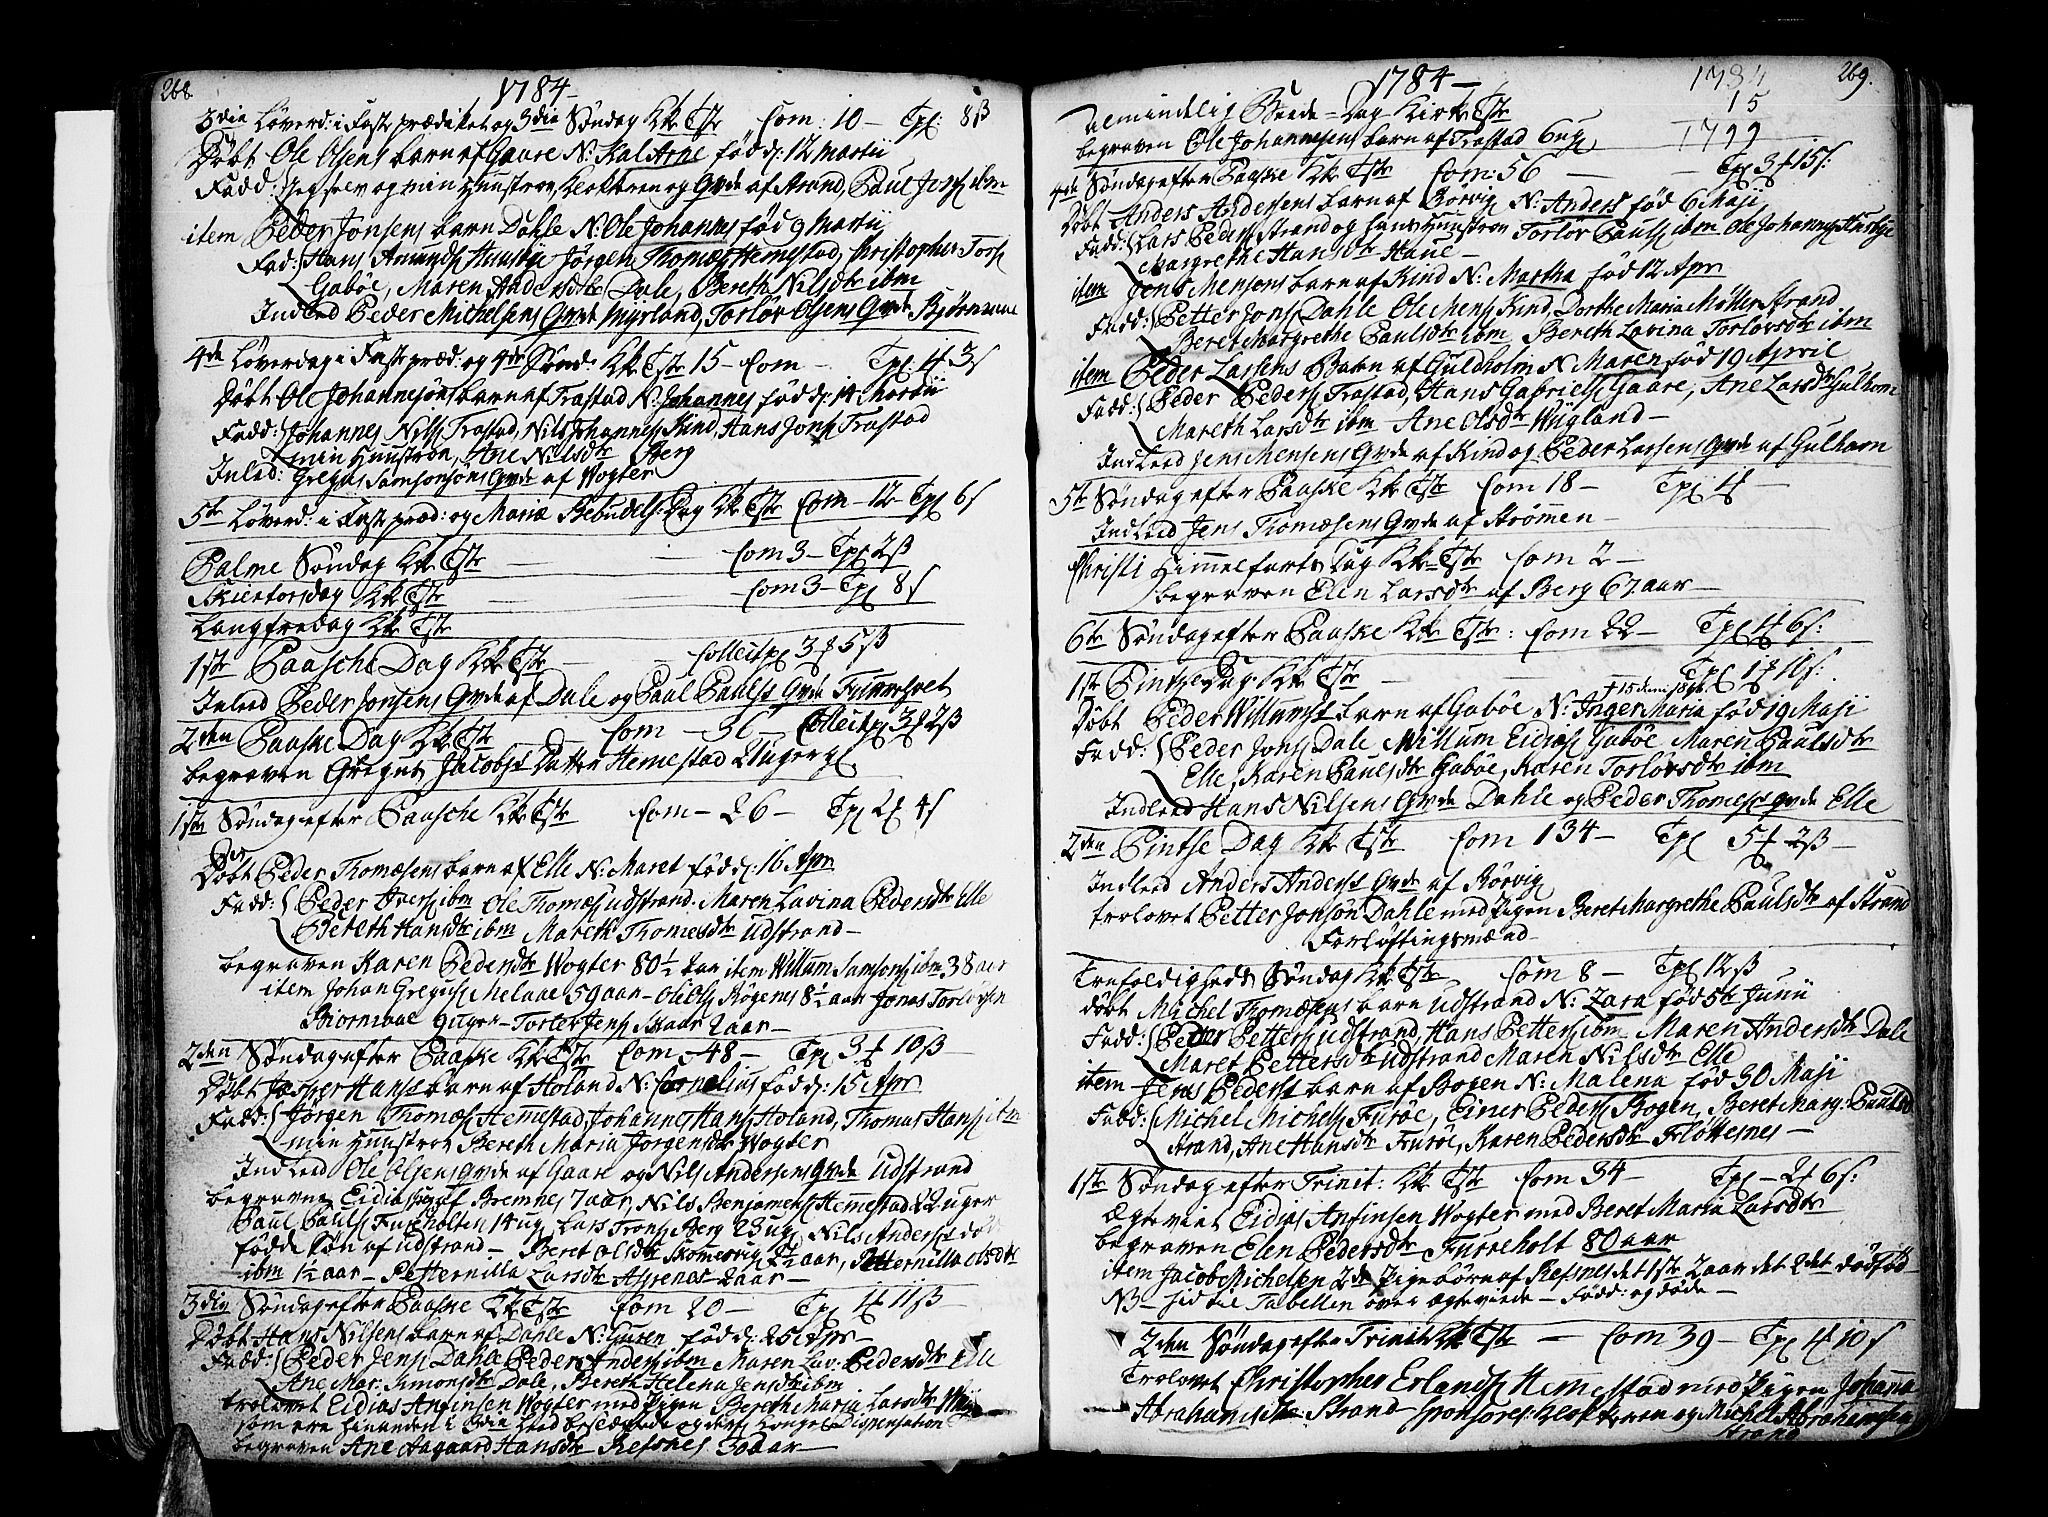 268
1784
3die Løverd: i Faste prædiket og 3die Søndag Kk Tste Com: 10 — Tpl: 8ß
Døbt Ole Olsens barn af Gaare N: Kal Arne fød d: 12 Martii
Fadd: Jeg selv og min Hunstroe, Klokkeren og Gvde af Strand, Paul Jons ibm
item Peder Jonsens barn Dahle N: Ole Johannes fød 9 Martii
Fad: Hans Amunds Huusbye Jørgen Thomæs Hemestad, Christopher Tors
Gaböe, Maren Andersdtr Dale, Bereth Nilsdtr ibm
Indled Peder Michelsens Gvde Myrland, Torlöv Olsens Gvde Bjørnraae
4de Løverdag i Faste præd: og 4de Sønd: Kk Tste 15 — Com — Tpl 4 3s
Døbt Ole Johannesøns barn af Trastad N: Johannes fød d: 14 Martii
Fadd: Johannes Nils Trastad, Nils Johannes Kind, Hans Jons Trastad
min Hunstroe, Ane Nilsdtr Berg
Inled: Gregus Samsonsøns Gvde af Wogter
5te Løverd: i Faste præd: og Mariæ Bebudels: Dag Kk Tste Com — 12 — Tpl 6s
Palme Søndag Kk Tste — Com 3 — Tpl 2ß
Skiertorsdag Kk Tste — Com 3 — Tpl 8s
Langfredag Kk Tste
1ste Paasche Dag Kk Tste — Collect 3 5ß
Inled Peder Jonsens Gvde af Dale og Paul Pauls Gvde
2den Paaske Dag Kk Tste Com — 36 Collect 3 2ß
begraven Gregus Jacobs Datter Hemestad 2 Uger
1ste Søndag efter Paasche Kk Tste Com — 26 — Tpl 2 4s
Døbt Peder Thomæsens barn af Elle N: Maret fød d: 16 Apr
Fadd: Peder Ivers ibm Ole Thomæs udstrand. Maren Lavina Pedersdtr Elle
Bereth Hansdtr ibm Mareth Thomesdtr Udstrand —
begraven Karen Pedersdtr Wogter 80½ aar item Willum Samsons ibm 38 aar
item Johan Gregus Melaae 59 aar — Ole Ols Rögenes 8½ aar Jonas Torlövsen
Biornraae 9 uger — Torter Jens Skaar 2 aar —
2den Søndag efter Paaske Kk Tste Com — 48 — Tpl 3 10ß
Døbt Jasper Hans barn af Holand N: Cornelius fød d: 15 Apr
Fadd: Jørgen Thomæs Hemestad, Johannes Hans Holand, Thomas Hans ibm
min Hunstroe Bereth Maria Jørgensdtr Wogter
Indled Ole Olsens Gvde af Gaare og Nils Andersens Gvde Udstrand
begravne Eidis Bremnes 7 aar, Nils Benjamens Hemestad 22 Uger
Paul Pauls Fureholten 14 ug, Lars Trons Berg 23 ug, Nils Anders död
fødde Søn af Udstrand — Beret Olsdtr aar, Petternilla Olsdtr
ibm 1½ aar — Petternilla Larsdtr 2 aar —
3die Søndag efter Paaske Kk Tste Com 20 — Tpl 4 11ß —
Døbt Hans Nilsens barn af Dahle N: Guren fød d: 25 Apr —
Fadd: Peder Jens Dahle Peder Anders ibm Maren Lav: Pedersdtr Elle
Ane Mar: Simonsdtr Dale, Bereth Helena Jensdtr ibm
trolovet Eidias Anfinsen Wogter med Pigen Bereth Maria Larsdtr
som ere hinanden i 3die Leed beslægtede og deres Konge: Dispensation
begraven Ane Aagaard Hansdtr Refsnes 30 aar —
1784 —
1784
15
1799
269.
Almindelig Beede-Dag Kirk Tste
begraven Ole Johannesens barn af Trastad 6 ug
4de Søndag efter Paaske Kk Tste Com: 56 — Tpl 3 15s:
Døbt Anders Andersens barn af Rörvig N: Anders fød 6 Maji
Fadd: Lars Peders Strand og hans Hunstroe Torlöv Pauls ibm Ole Johannes Husbye
Margrethe Hansdtr Haue —
item Jens Mensens barn af Kind N: Martha fød 12 Apr
Fadd: Petter Jons Dahle Ole Mens Kind, Dorthe Maria Möller Strand
Beret Margrethe Paulsdtr ibm Bereth Lavina Torlövsdtr ibm
item Peder Lassens Barn af Guldholm N: Maren fød 19 April
Fadd: Peder Peders Trastad, Hans Gabriels Gaare, Ane Larsdtr Gulhom
Mareth Larsdtr ibm Ane Olsdtr Wügland —
Indled Jens Mensens Gvde af Kind og Peder Lassens Gvde af Gulhom
5te Søndag efter Paaske Kk Tste Com 18 — Tpl 4 —
Indled Jens Thomæsens Gvde af Strømmen —
Christi Himmelfarts Dag Kk Tste Com 2 —
begraven Elen Larsdtr af Berg 67 aar —
6te Søndag efter Paaske Kk Tste: Com 22 — Tpl 4 6s:
1ste Pintse Dag Kk Tste — Tpl 1 10s:
Døbt Peder Willums barn af Gaböe N: Inger Maria fød 19 Maji
Fadd: Peder Jons Dale Willum Eidis Gaböe Maren Paulsdtr
Elle, Karen Paulsdtr Gaböe, Karen Torlövsdtr ibm
Indled Hans Nilsens Gvde Dahle og Peder Thomes Gvde Elle
2den Pintse Dag Kk Tste Com 134 — Tpl 5 2ß —
Indled Anders Anders Gvde af Rörvig
trolovet Petter Jonsön Dahle med Pigen Beret Margrethe Paulsdtr af Strand
Forløftingsmænd —
Trefoldigheds Søndag Kk Tste Com 8 — Tpl 12ß
døbt Michel Thomæsens barn Udstrand N: Zara fød 5te Junii
Fadd: Peder Petters udstrand, Hans Petters ibm Maren Andersdtr Dale
Maret Pettersdtr Udstrand Maren Nilsdtr Elle
item — Jens Peders barn af Bogen N: Malena fød 30 Maji
Fadd: Michel Michels Furöe, Einer Peders Bogen, Beret Marg: Paulsd
Strand, Ane Hansdtr Furöe, Karen Pedersdtr Flöttesnes —
1ste Søndag efter Trinit: Kk Tste Com 34 Tpl — 2 6s:
Ægteviet Eidias Anfinsen Wogter med Beret Maria Larsdtr
begraven Elen Pedersdtr Furreholt 80 aar
item Jacob Michelsen 2de Pige börn af Refsnes det 1ste 2 aar det 2det dødfød
NB — hid til Tabellen over Ægteviede — Född: og døde —
2den Søndag efter Trinit Kk Tste — Com 39 — Tpl 4 10s
Trolovet Christopher Erlands Hemestad med Pigen Johanna
Abrahamsdtr Strand Sponsores: Klokkeren og Michel Abrahamsen
Strand